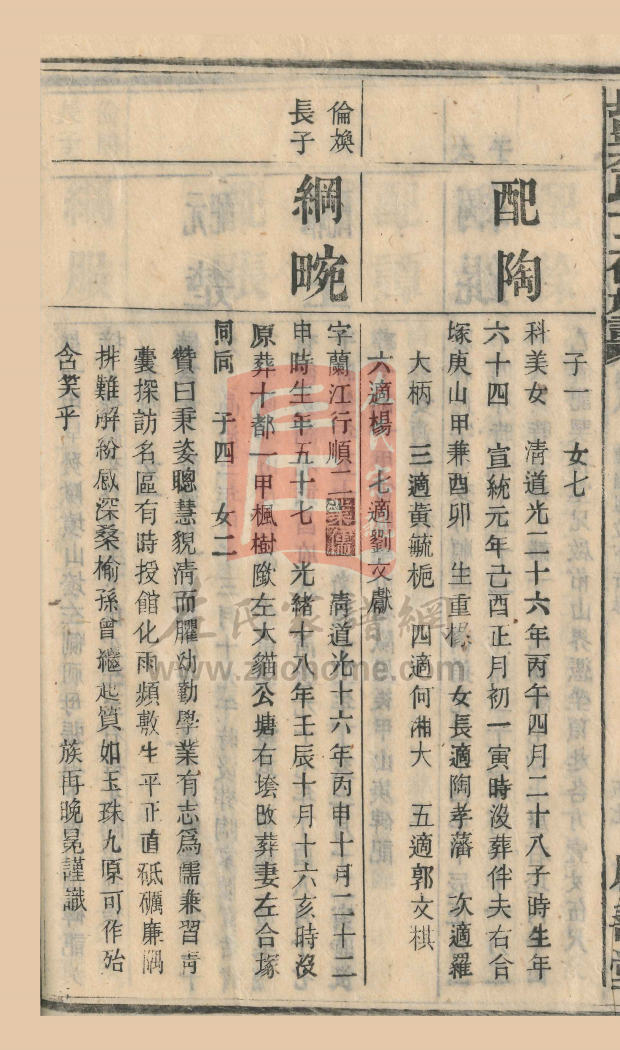 子一　女七
配陶
科美女　清道光二十六年丙午四月二十八子時生年
六十四　宣統元年己酉正月初一寅時沒葬伴夫右合
塚庚山甲兼酉卯　生重椽　女長適陶孝藩　次適羅
大柄　三適黃毓梔　四適何湘大　五適郭文棋
六適楊　七適劉文獻
倫煥
長子
綱晼
字蘭江行順二業儒　清道光十六年丙申十月二十二
申時生年五十七　光緒十八年壬辰十月十六亥時沒
原葬十都一甲楓樹隞左大貓公塘右塝改葬妻左合塚
同向　子四　女二
贊曰秉姿聰慧貌清而臞幼勤學業有志爲儒兼習靑
囊探訪名區有時授館化雨頻敷生平正直砥礪廉隅
排難解紛感深桑榆孫曾繼起質如玉珠九原可作殆
含笑乎　族再晚晃謹識
左氏家譜網
www.zuohome.com